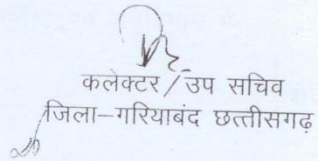 कलेक्टर/उप सचिव
जिला–गरियाबंद छत्तीसगढ़